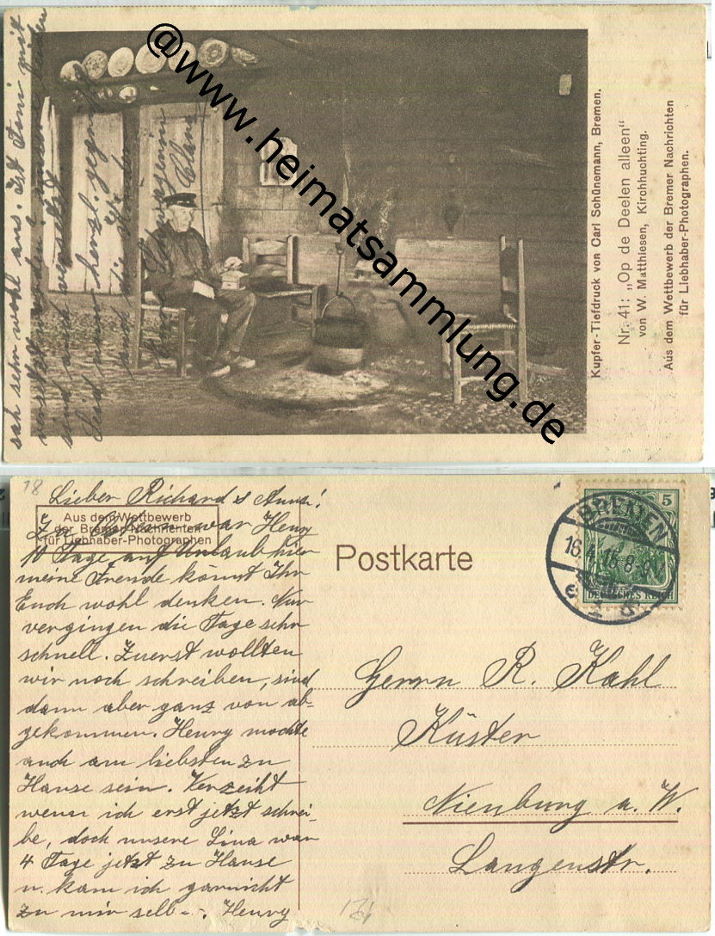 @www.heimatsammlung.de
Kupfer-Tiefdruck von Carl Schünemann, Bremen.
Nr. 41: „Op de Deelen alleen“
von W. Matthiesen, Kirchhuchting.
Aus dem Wettbewerb der Bremer Nachrichten
für Liebhaber-Photographen.
Lieber Richard
war Henry
10 Tage auf Urlaub hier
meine Freude könnt Ihr
Euch wohl denken. Nur
vergingen die Tage sehr
schnell. Zuerst wollten
wir noch schreiben, sind
dann aber ganz von ab-
gekommen. Henry mochte
auch am liebsten zu
Hause sein. Verzeiht
wenn ich erst jetzt schrei-
be, doch unsere Lina war
4 Tage jetzt zu Hause
u. kam ich garnicht
zu mir selb-. Henry
sah sehr wohl aus. Ist Toni mit
sind
herzl. gegrüßt
Schwägerin
Clara
Aus dem Wettbewerb
der Bremer Nachrichten
für Liebhaber-Photographen
Postkarte
5
DEUTSCHES REICH
BREMEN
16.4.15.8-9V
Herrn R. Kahl
Küster
Nienburg a. W.
Langenstr.